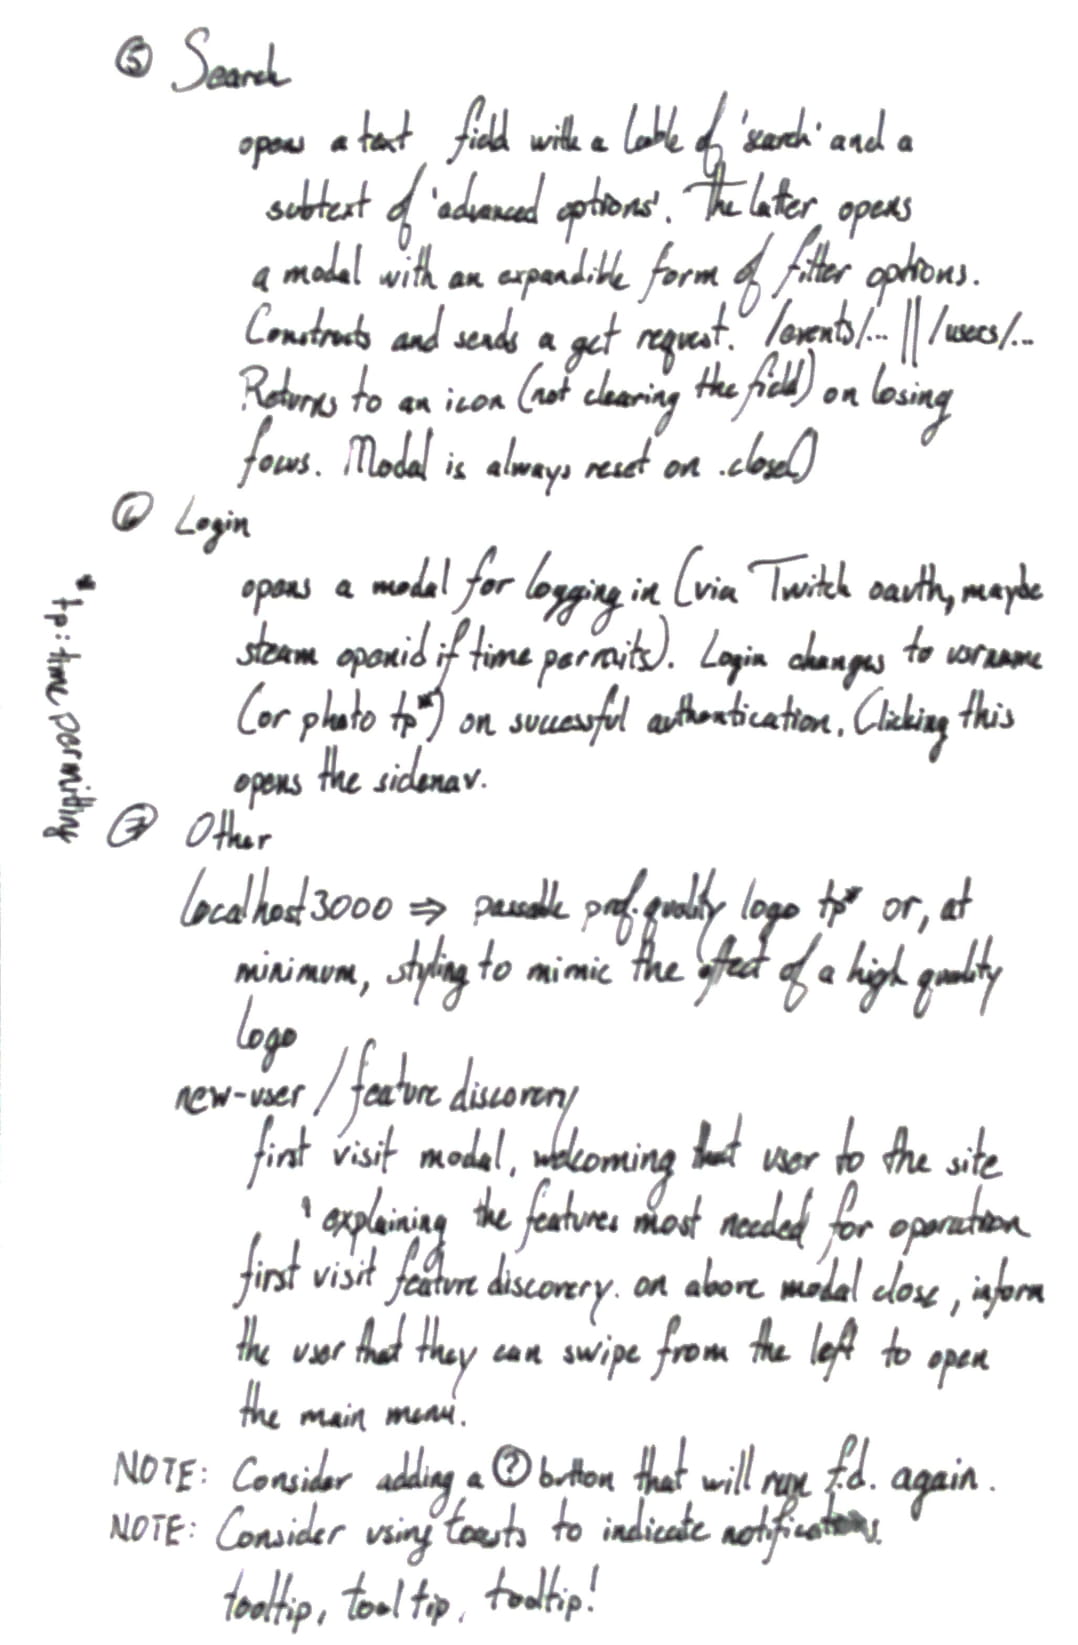 ⑤ Search
opens a text field with a lable of 'search' and a
subtext of 'advanced options'. The latter opens
a modal with an expandible form of filter options.
Constructs and sends a get request. /events/... || /users/...
Returns to an icon (not clearing the field) on losing
focus. Modal is always reset on .close()
⑥ Login
opens a modal for logging in (via Twitch oauth, maybe
steam openid if time permits). Login changes to usrname
(or photo tp*) on successful authentication. Clicking this
opens the sidenav.
* tp: time permitting
⑦ Other
localhost3000 ⇒ passable prof. quality logo tp* or, at
minimum, styling to mimic the effect of a high quality
logo
new-user / feature discovery
first visit modal, welcoming that user to the site
explaining the features most needed for operation
first visit feature discovery. on above modal close, inform
the user that they can swipe from the left to open
the main menu.
NOTE: Consider adding a ? button that will run f.d. again.
NOTE: Consider using toasts to indicate notifications.
tooltip, tooltip, tooltip!